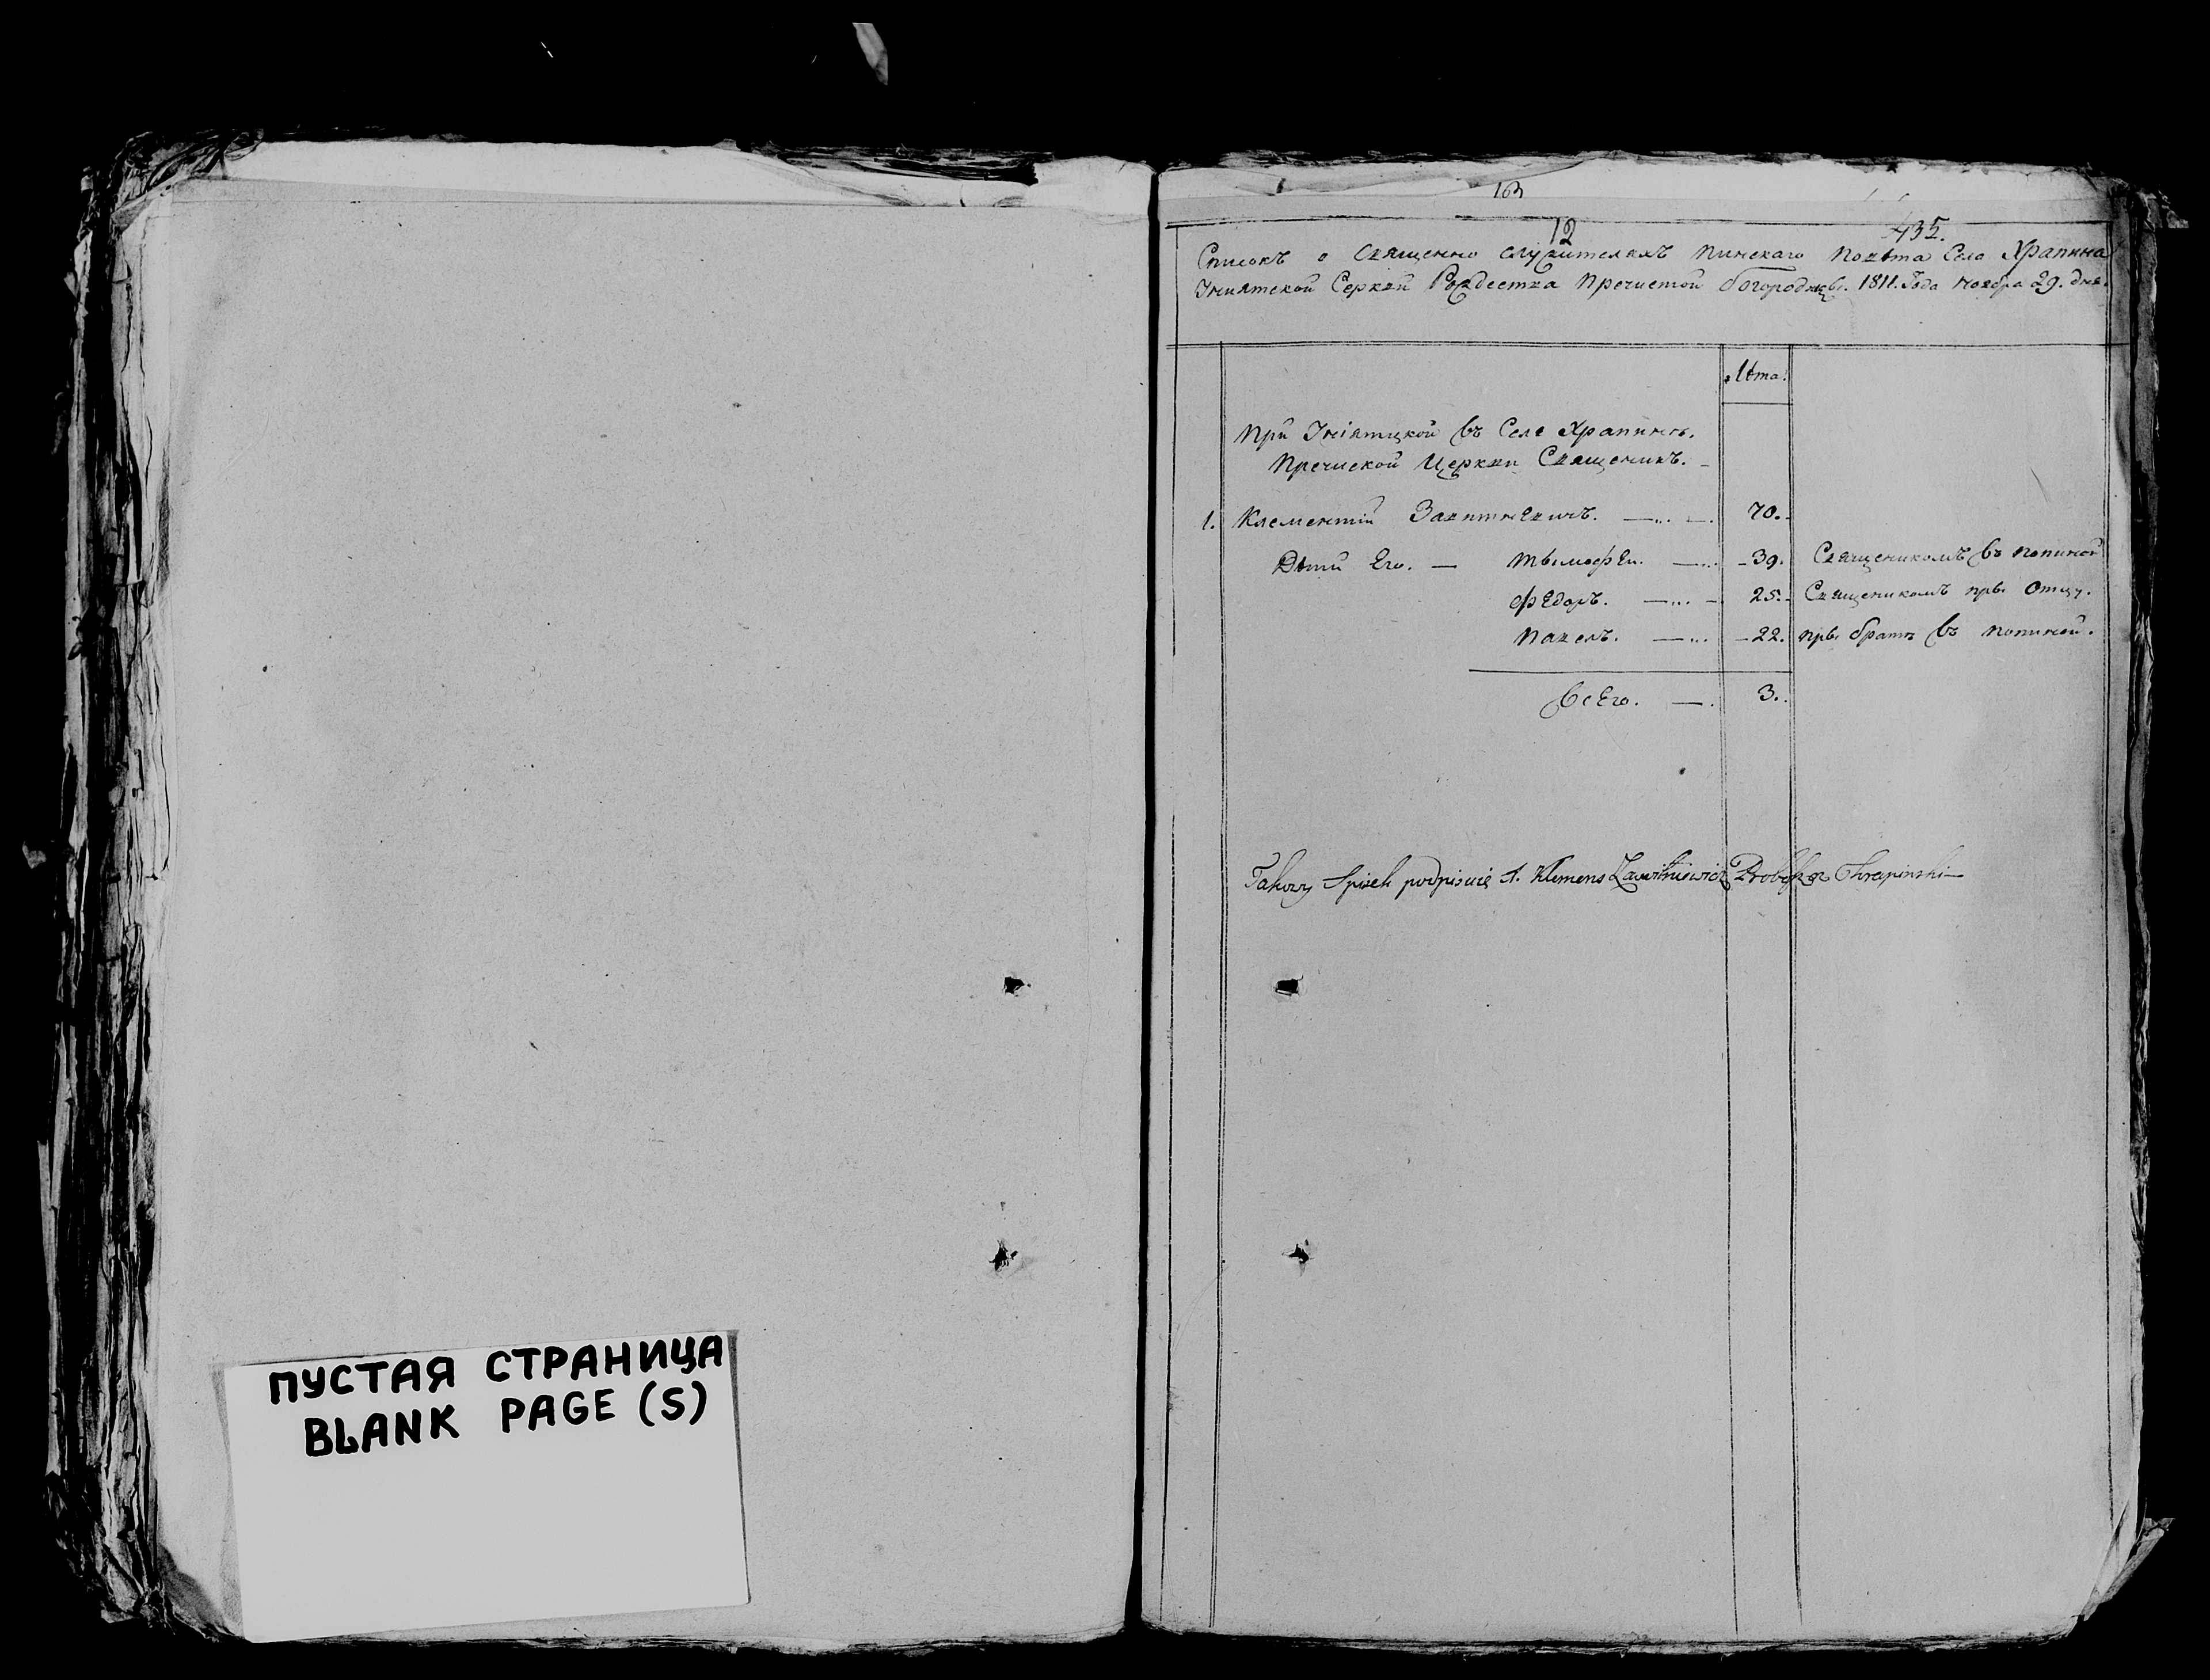 ПУСТАЯ СТРАНИЦА
BLANK PAGE (S)
13
12
435.
Списокъ о Священно служителяхъ Пинскаго Повѣта Села Храпина
Унiятской Серкви Рождества Пречистой богородицы. 1811. Года Ноября 29. дня.
Лѣта.
При Унiятцкой въ Селе Храпинѣ.
Пречиской Церкви Священикъ.
1. Клементiй Завитневичъ. — 70.
Дѣти Его. — Тымофей. — 39. Священикомъ въ
Федоръ. — 25. Священикомъ при Отцу.
Павелъ. — 22. при братѣ въ
всЕго. — 3.
Takowy Spisek podpisuię X. Klemens Zawitniewicz Chrapinski